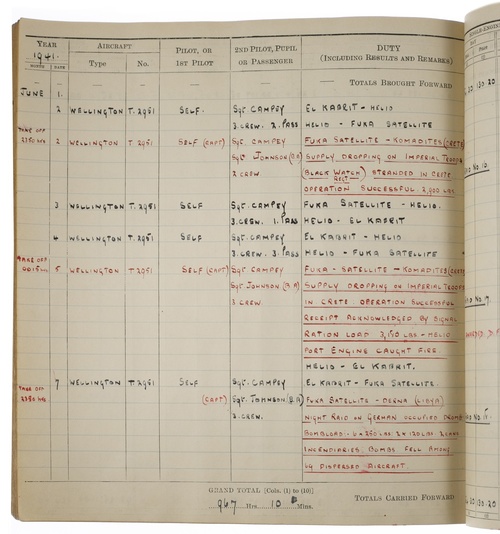 YEAR AIRCRAFT PILOT, OR 1ST PILOT 2ND PILOT, PUPIL OR PASSENGER DUTY (INCLUDING RESULTS AND REMARKS)
1941.
MONTH DATE Type No.
— — — — TOTALS BROUGHT FORWARD
JUNE 1.
2 WELLINGTON T.2951 SELF. SGT. CAMPEY EL KABRIT - HELIO
3.CREW. 2.PASS HELIO - FUKA SATELLITE
TAKE OFF
2150 HRS 2 WELLINGTON T.2951 SELF (CAPT) SGT. CAMPEY FUKA SATELLITE - KOMADITES (CRETE)
SGT JOHNSON SUPPLY DROPPING ON IMPERIAL TROOPS
2 CREW (BLACK WATCH REGT) STRANDED IN CRETE
OPERATION SUCCESSFUL. 2,900 LBS.
3 WELLINGTON T.2951 SELF SGT. CAMPEY FUKA SATELLITE - HELIO.
3.CREW. 1.PASS HELIO - EL KABRIT
4 WELLINGTON T.2951 SELF SGT. CAMPEY EL KABRIT - HELIO
3.CREW. 3.PASS HELIO - FUKA SATELLITE
TAKE OFF
5 WELLINGTON T.2951 SELF (CAPT) SGT CAMPEY FUKA - SATELLITE - KOMADITES (CRETE)
SGT JOHNSON (B.A) SUPPLY DROPPING ON IMPERIAL TROOPS
3 CREW. IN CRETE OPERATION SUCCESSFUL
RECEIPT ACKNOWLEDGED BY SIGNAL
RATION LOAD HELIO
PORT ENGINE CAUGHT FIRE.
HELIO - EL KABRIT.
7 WELLINGTON T.2951 SELF SGT. CAMPEY EL KABRIT - FUKA SATELLITE.
TAKE OFF
(CAPT) SGT. JOHNSON (B.A) FUKA SATELLITE - DERNA (LIBYA)
3.CREW. NIGHT RAID ON GERMAN OCCUPIED DROME
BOMBLOAD
INCENDIARIES. BOMBS FELL AMONG
DISPERSED AIRCRAFT.
GRAND TOTAL [Cols. (1) to (10)]
967 Hrs. 10 Mins. TOTALS CARRIED FORWARD